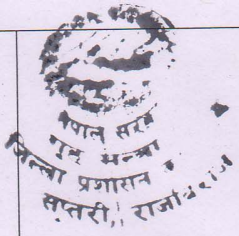 नेपाल सरकार
गृह मन्त्रालय
जिल्ला प्रशासन का
सप्तरी, राजविराज